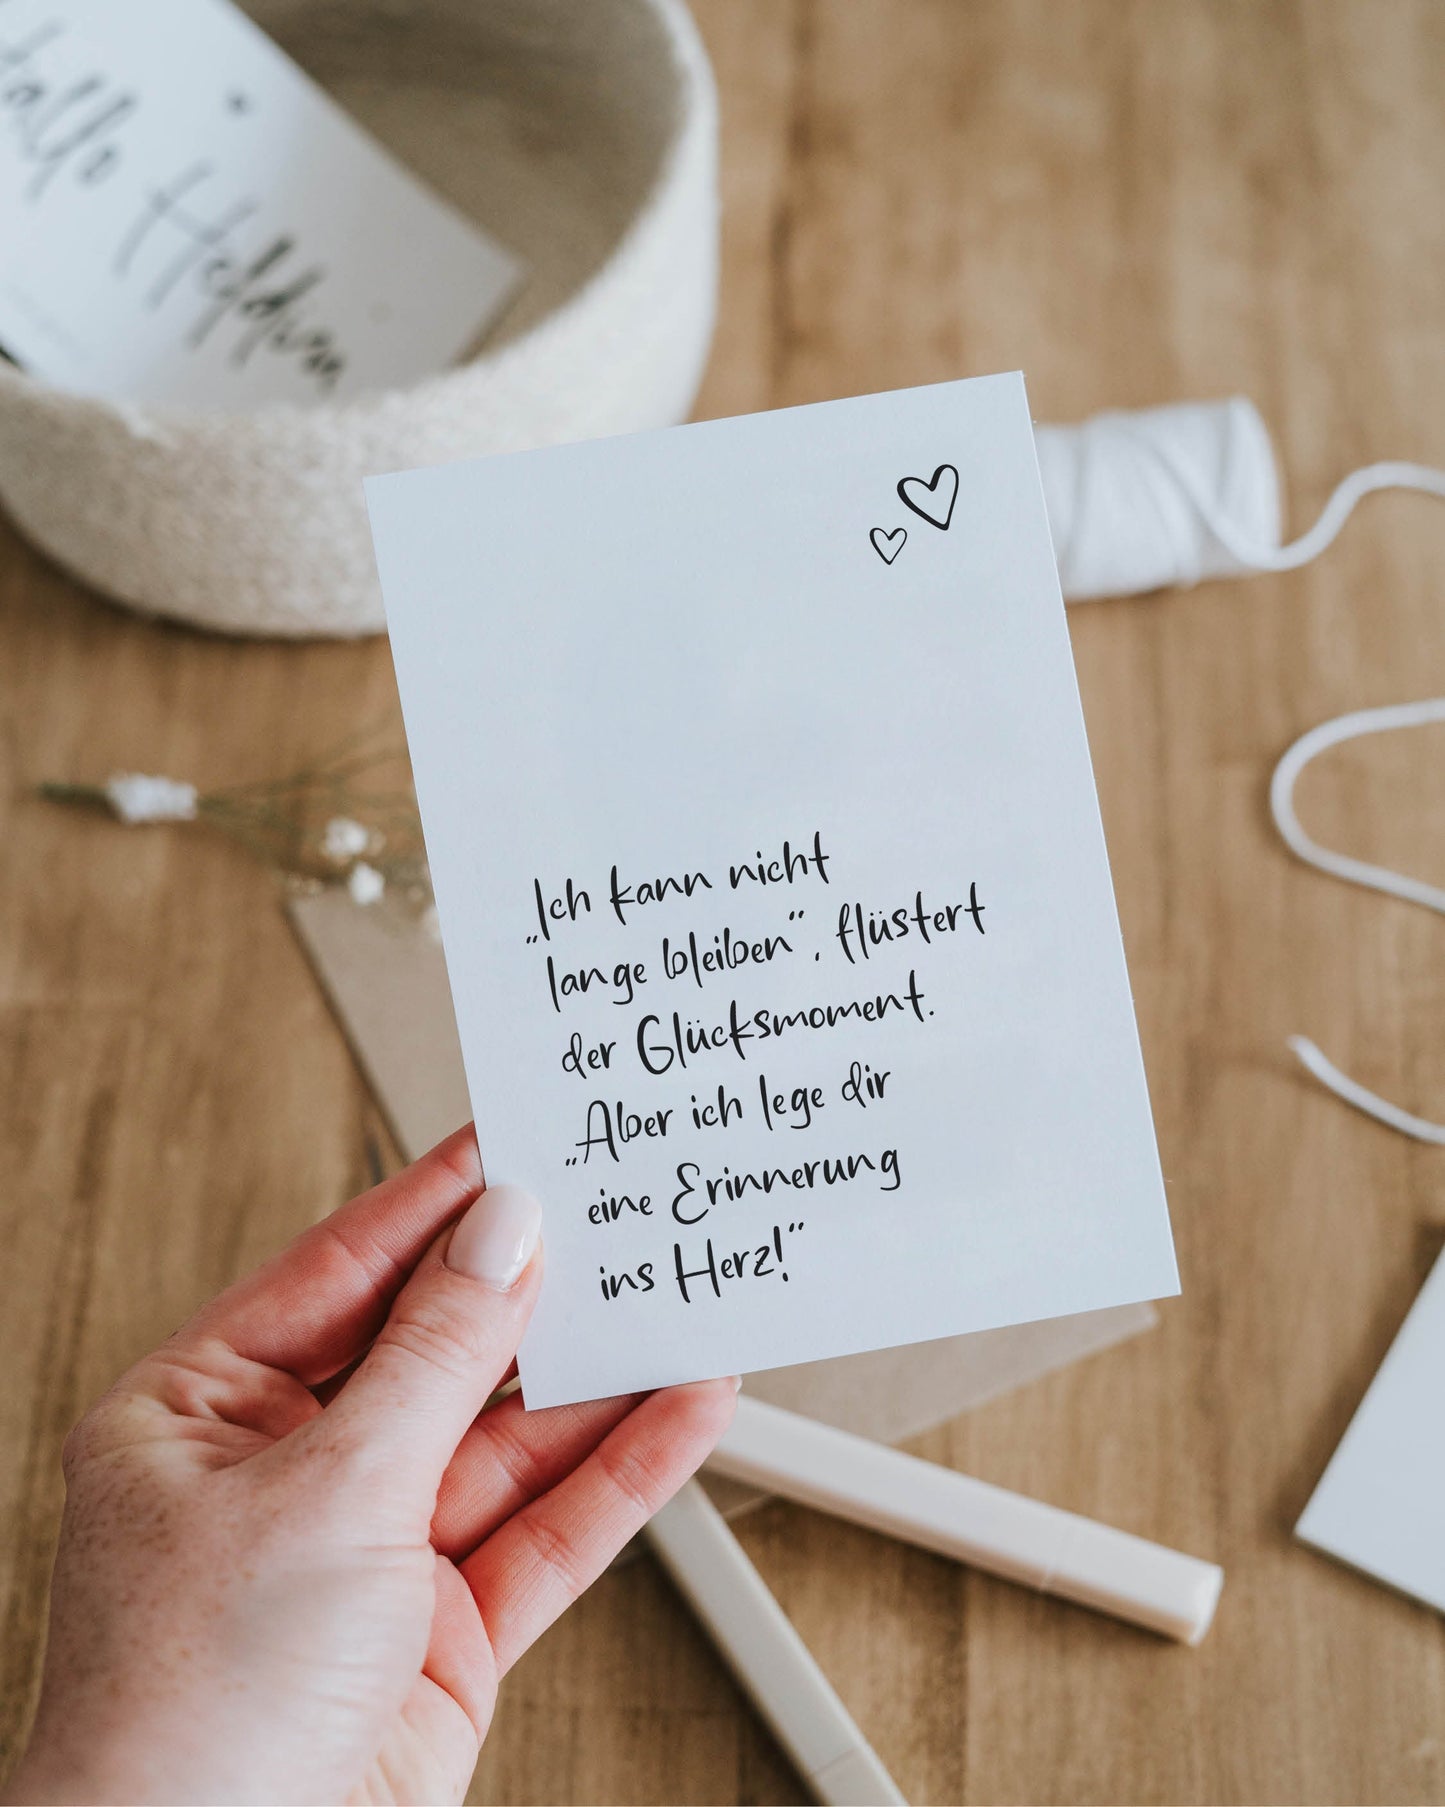 Hallo
„Ich kann nicht
lange bleiben“, flüstert
der Glücksmoment.
„Aber ich lege dir
eine Erinnerung
ins Herz!“